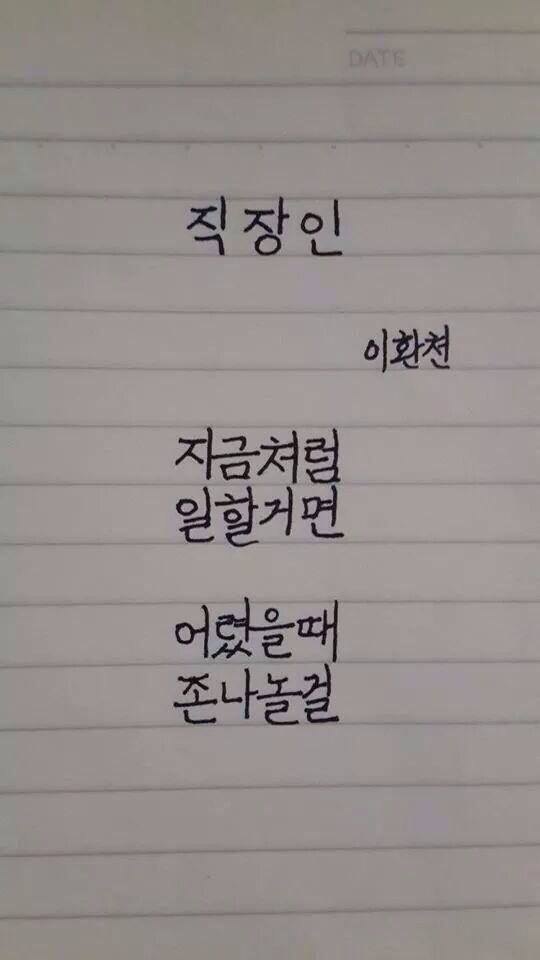 DATE
직장인
이환천
지금처럼
일할거면
어렸을때
존나놀걸